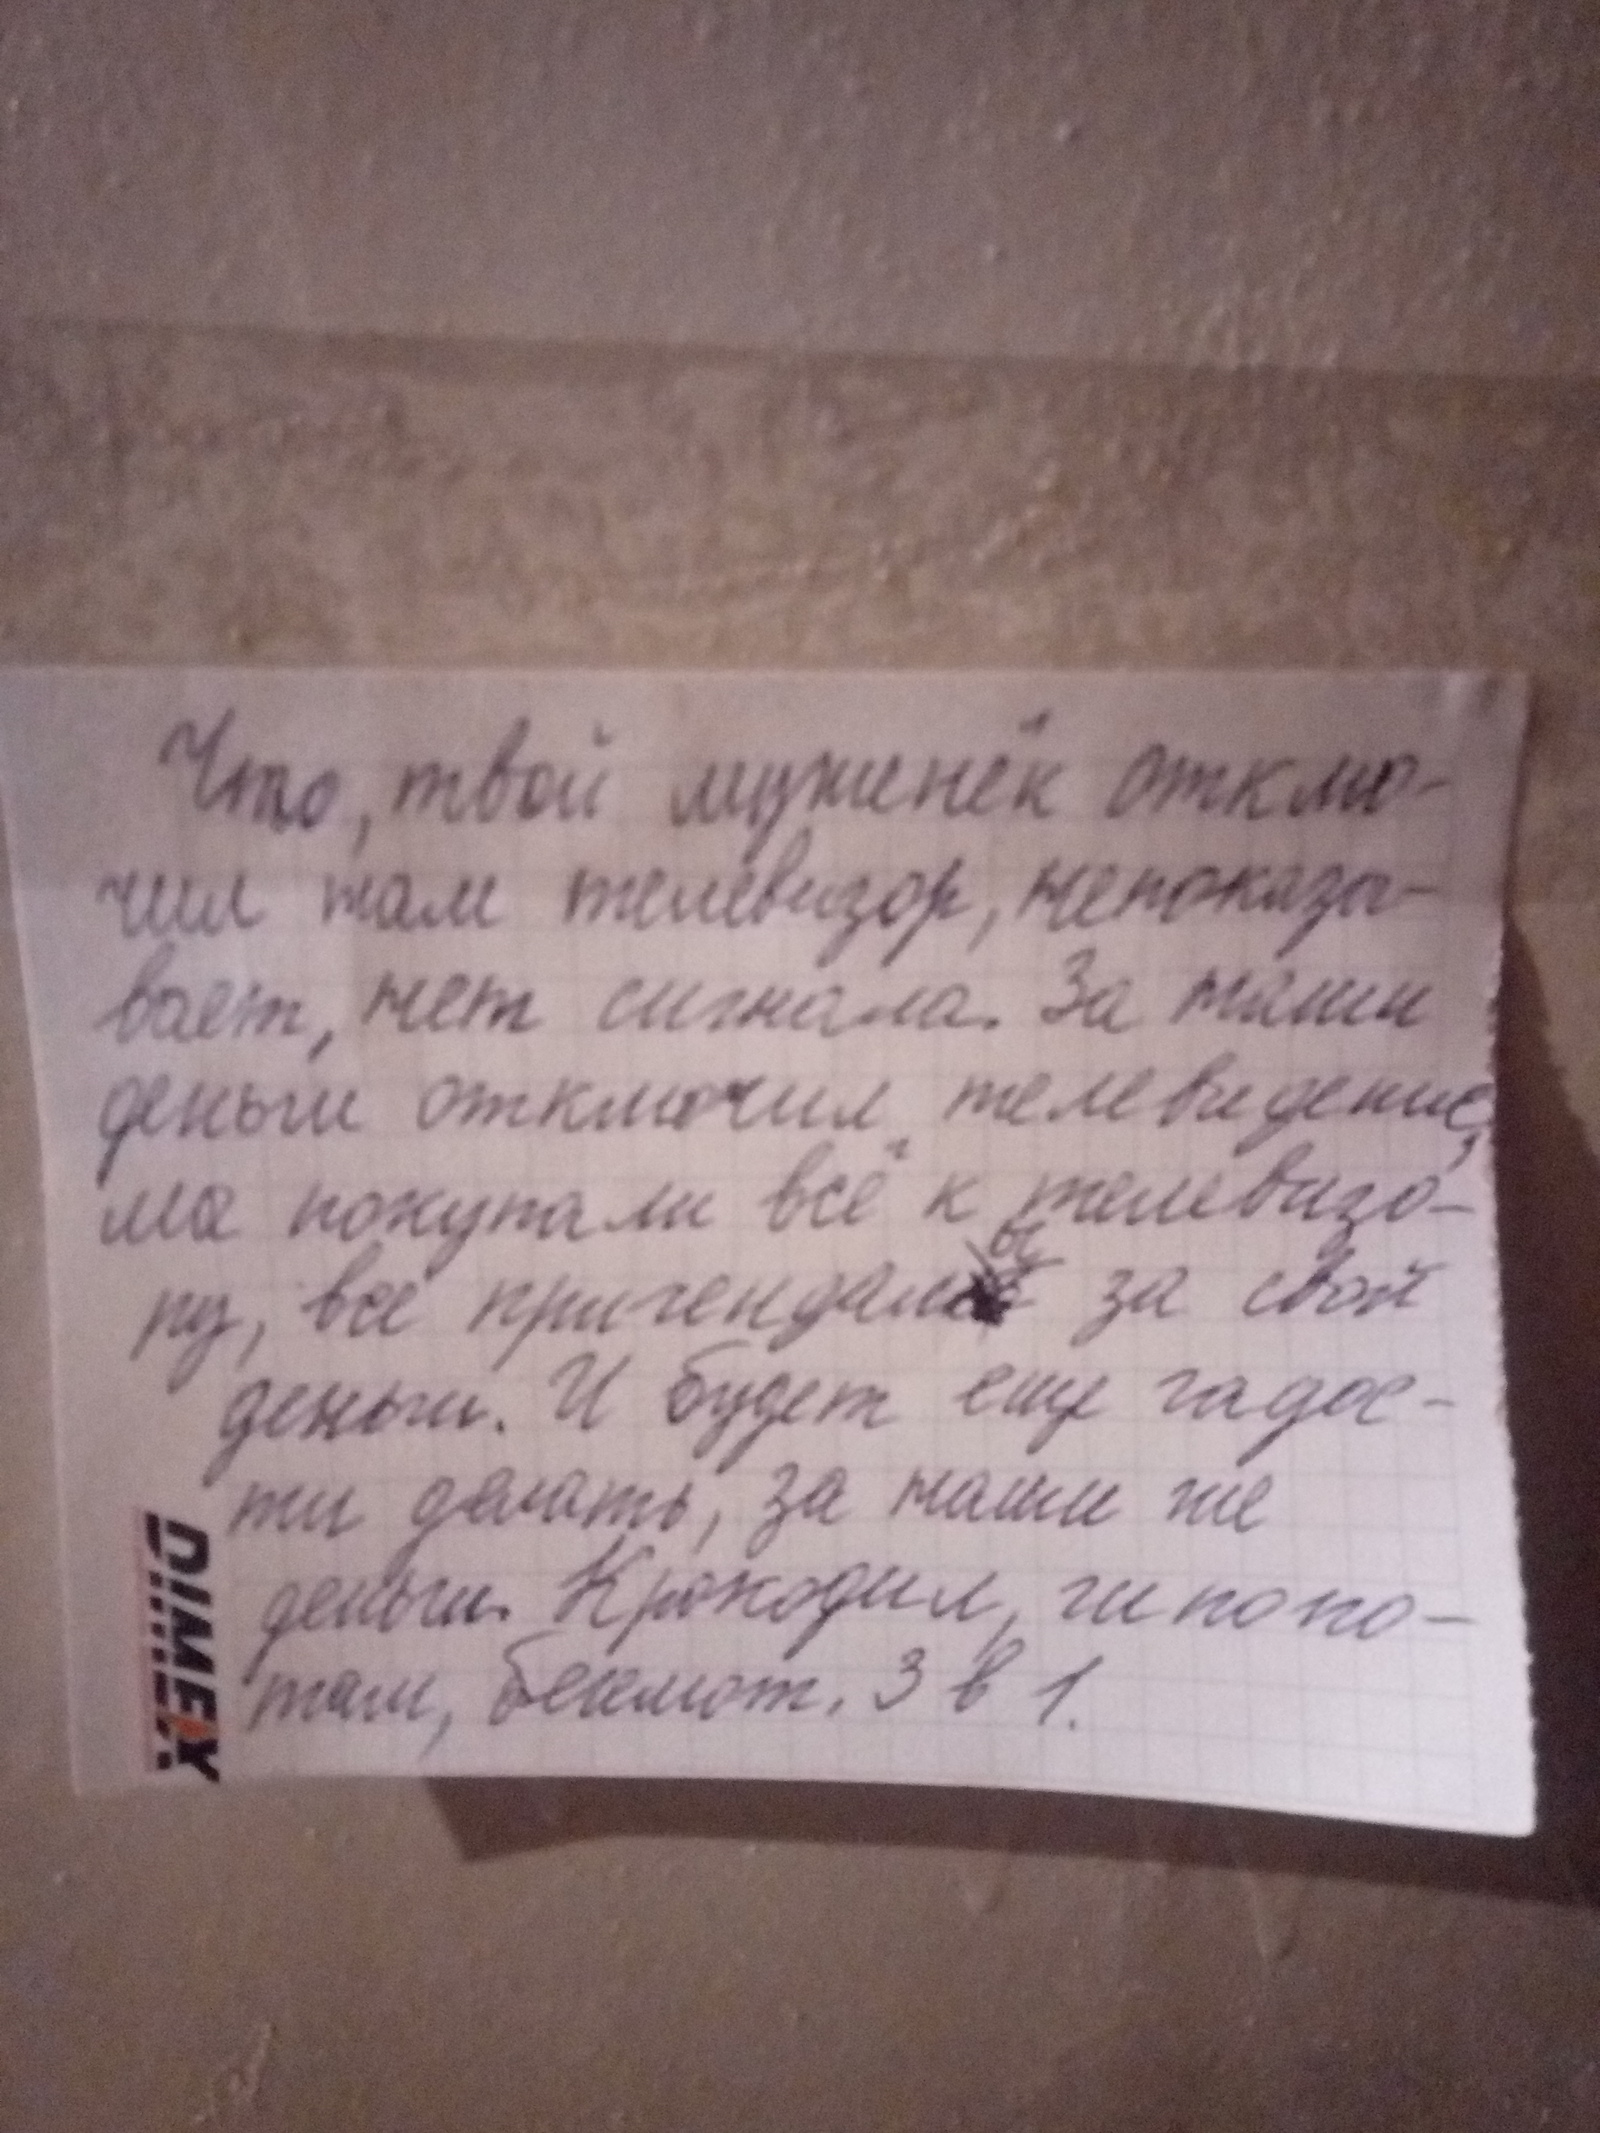 Что, твой муженёк отклю-
чил там телевизор, непоказы-
вает, нет сигнала. За наши
деньги отключил телевидение,
мы покупали всё к телевизо-
ру, все за свой
деньги. И будет еще гадос-
ти делать, за наши же
деньги. Крокодил, гипопо-
там, бегемот. 3 в 1.
DIMEX